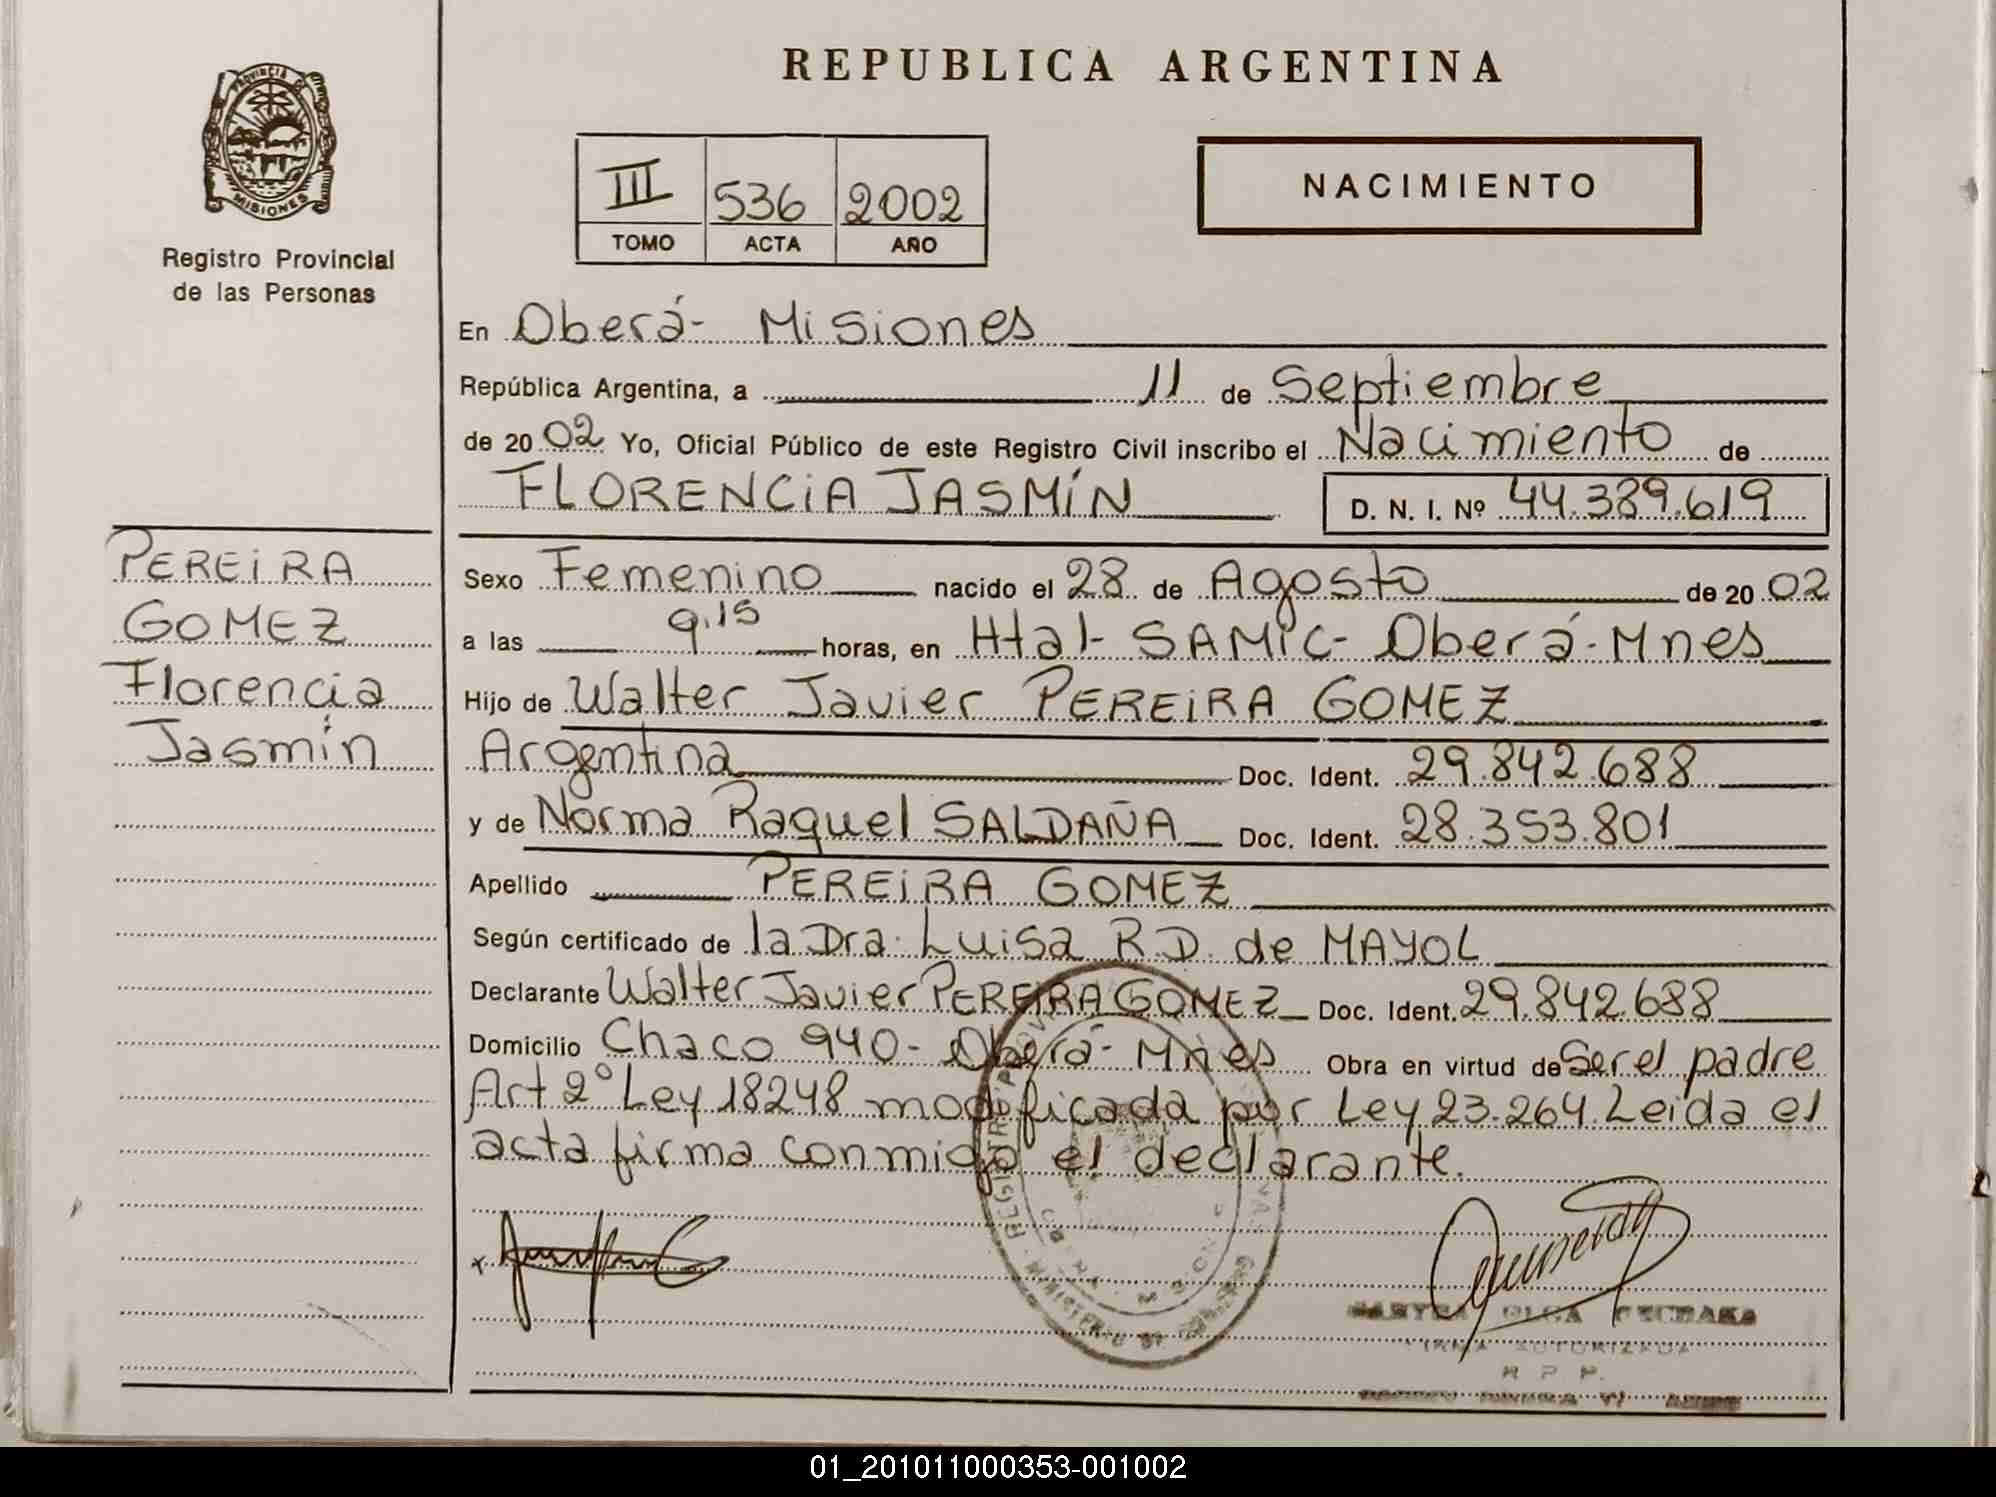 PROVINCIA DE
MISIONES
Registro Provincial
de las Personas
REPUBLICA ARGENTINA
III 536 2002
TOMO ACTA AÑO
NACIMIENTO
En Oberá- Misiones
República Argentina, a 11 de Septiembre
de 2002 Yo, Oficial Público de este Registro Civil inscribo el Nacimiento de
FLORENCIA JASMÍN D. N. I. Nº 44.389.619
PEREIRA
GOMEZ
Florencia
Jasmín
Sexo Femenino nacido el 28 de Agosto de 2002
a las 9.15 horas, en Htal- SAMIC- Oberá-Mnes
Hijo de Walter Javier PEREIRA GOMEZ
Argentina Doc. Ident. 29.842.688
y de Norma Raquel SALDAÑA Doc. Ident. 28.353.801
Apellido PEREIRA GOMEZ
Según certificado de la Dra. Luisa R.D. de MAYOL
Declarante Walter Javier PEREIRA GOMEZ Doc. Ident. 29.842.688
Domicilio Chaco 940- Oberá- Mnes Obra en virtud de Ser el padre
Art 2º Ley 18248 modificada por Ley 23.264. Leida el
acta firma conmigo el declarante.
OLGA
R P P.
01_201011000353-001002